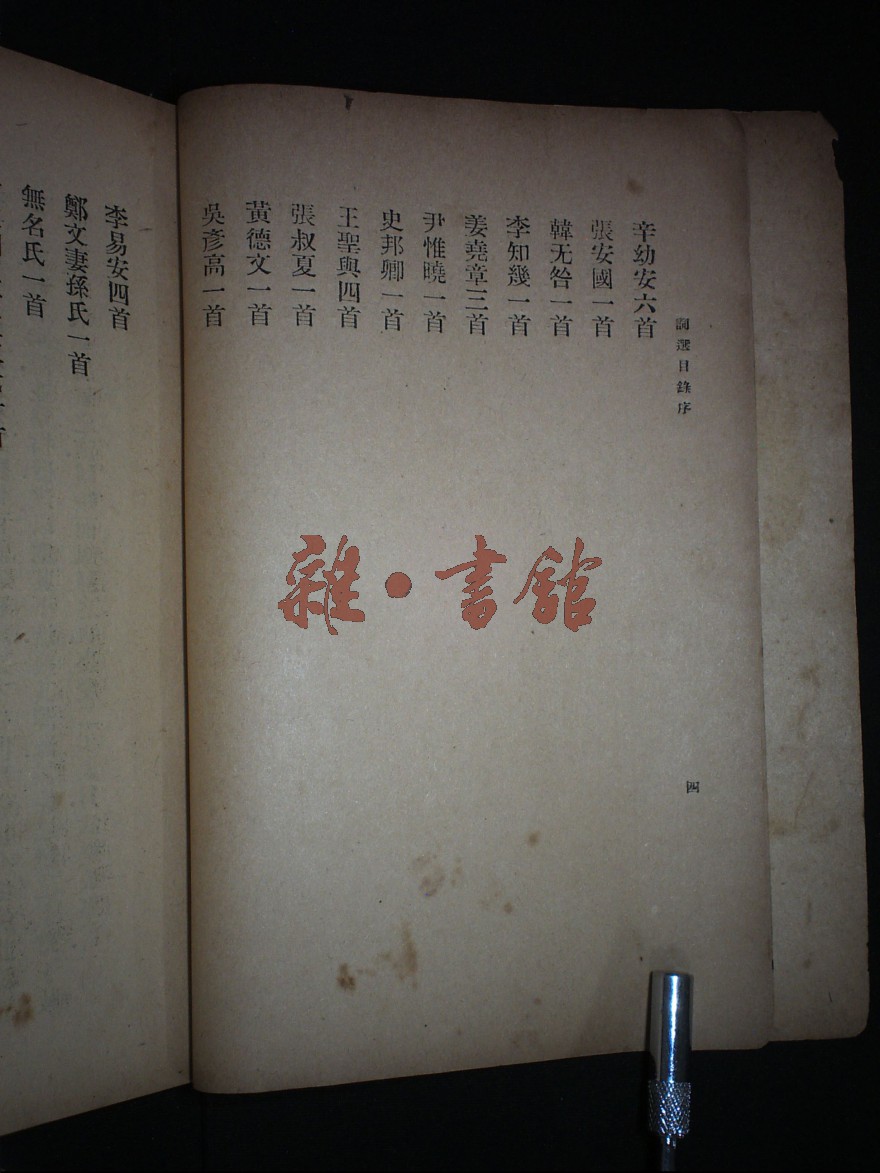 詞選目錄序
四
辛幼安六首
張安國一首
韓无咎一首
李知幾一首
姜堯章三首
尹惟曉一首
史邦卿一首
王聖與四首
張叔夏一首
黃德文一首
吳彥高一首
李易安四首
鄭文妻孫氏一首
無名氏一首
雜·書館